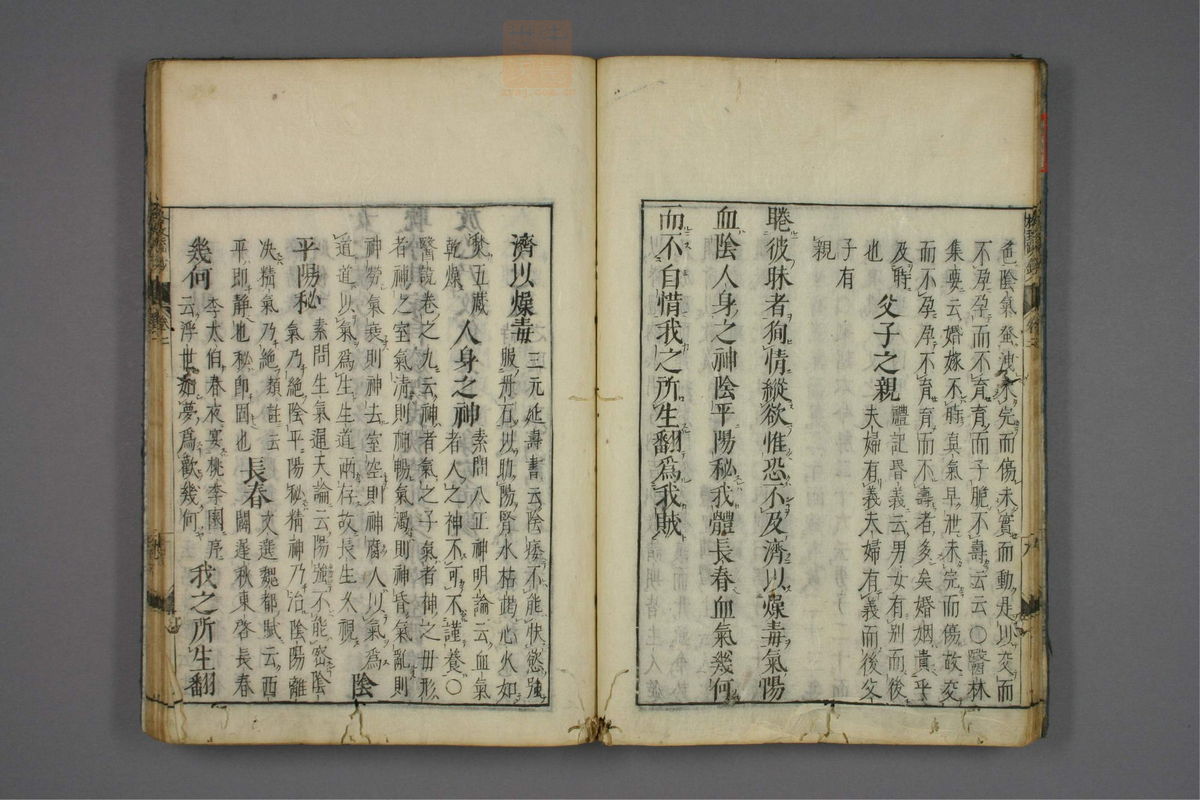 色陰氣蚤洩未完而傷未實而動是以交而
不孕孕而不育育而子脆不壽云云○醫林
集要云婚嫁不時真氣早泄未完而傷故交
而不孕孕不育育而不壽者多矣婚姻貴乎
及時 父子之親 禮記昏義云男女有別而後
也 夫婦有義夫婦有義而後父
子有
親
睠彼昧者狥情縱欲惟恐不及濟以燥毒氣陽
血陰人身之神陰平陽秘我體長春血氣幾何
而不自惜我之所生翻爲我賊
濟以燥毒 三元延壽書云陰痿不能快慾強
服丹石以助陽腎水枯竭心火如
焚五藏 人身之神 素問八正神明論云血氣
乾燥 者人之神不可不謹養○
醫說卷之九云神者氣之子氣者神之毋形
者神之室氣清則神暢氣濁則神昏氣亂則
神勞氣衰則神去室空則神腐人以氣爲
道道以氣爲生生道兩存故長生久視 陰
平陽秘 素問生氣通天論云陽強不能密陰
氣乃絕陰平陽秘精神乃治陰陽離
决精氣乃絕類註云 長春 文選魏都賦云西
平即静也秘即固也 闢遲秋東啓長春
幾何 李太伯春夜宴桃李園序
云浮世如夢爲歡幾何 我之所生翻